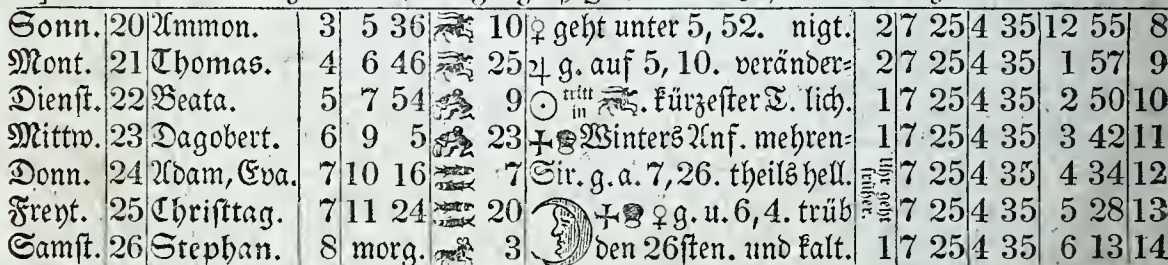 Sonn. 20 Ammon. 3 5 36 10 ♀ geht unter 5, 52. nigt. 2 7 25 4 35 12 55 8
Mont. 21 Thomas. 4 6 46 25 ♃ g. auf 5, 10. veränder⸗ 2 7 25 4 35 1 57 9
Dienst. 22 Beata. 5 7 54 9 ☉ tritt in kürzester T. lich. 1 7 25 4 35 2 50 10
Mittw. 23 Dagobert. 6 9 5 23 Winters Anf. mehren⸗ 1 7 25 4 35 3 42 11
Donn. 24 Adam, Eva. 7 10 16 7 Sir. g. a. 7, 26. theils hell. Uhr geht früher. 7 25 4 35 4 34 12
Freyt. 25 Christtag. 7 11 24 20 ♀ g. u. 6, 4. trüb 7 25 4 35 5 28 13
Samst. 26 Stephan. 8 morg. 3 den 26sten. und kalt. 1 7 25 4 35 6 13 14